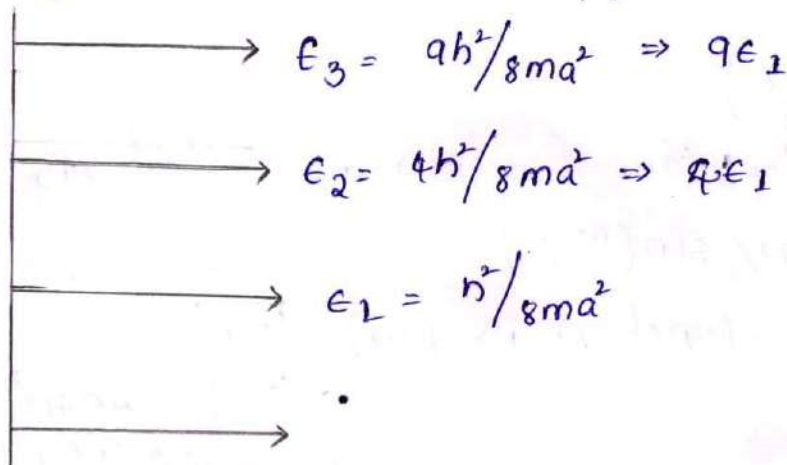 ϵ₃ = 9h²/8ma² ⇒ 9ϵ₁
ϵ₂ = 4h²/8ma² ⇒ 4ϵ₁
ϵ₁ = h²/8ma²